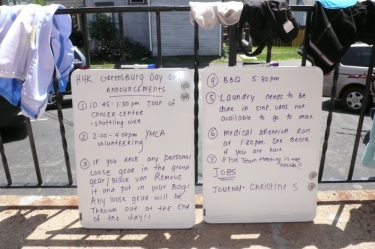 H4K Greensburg Day off
ANNOUNCEMENTS
① 10:45-1:30pm Tour of
CANCER CENTER
- Shuttling over
② 2:00-4:00pm YMCA
Volunteering
③ If you have any personal
Loose gear in the group
gear/Black van Remove
it and put in your Bag!
Any loose gear will be
Thrown out at the end
of the day!!
④ BBQ 5:30pm
⑤ Laundry needs to be
done in sink vans not
available to go to mat.
⑥ Medical attention Run
at 1:30pm. See Becca
if you are hurt.
⑦ 8pm Team Meeting in the
JOBS
Journal - Christine S